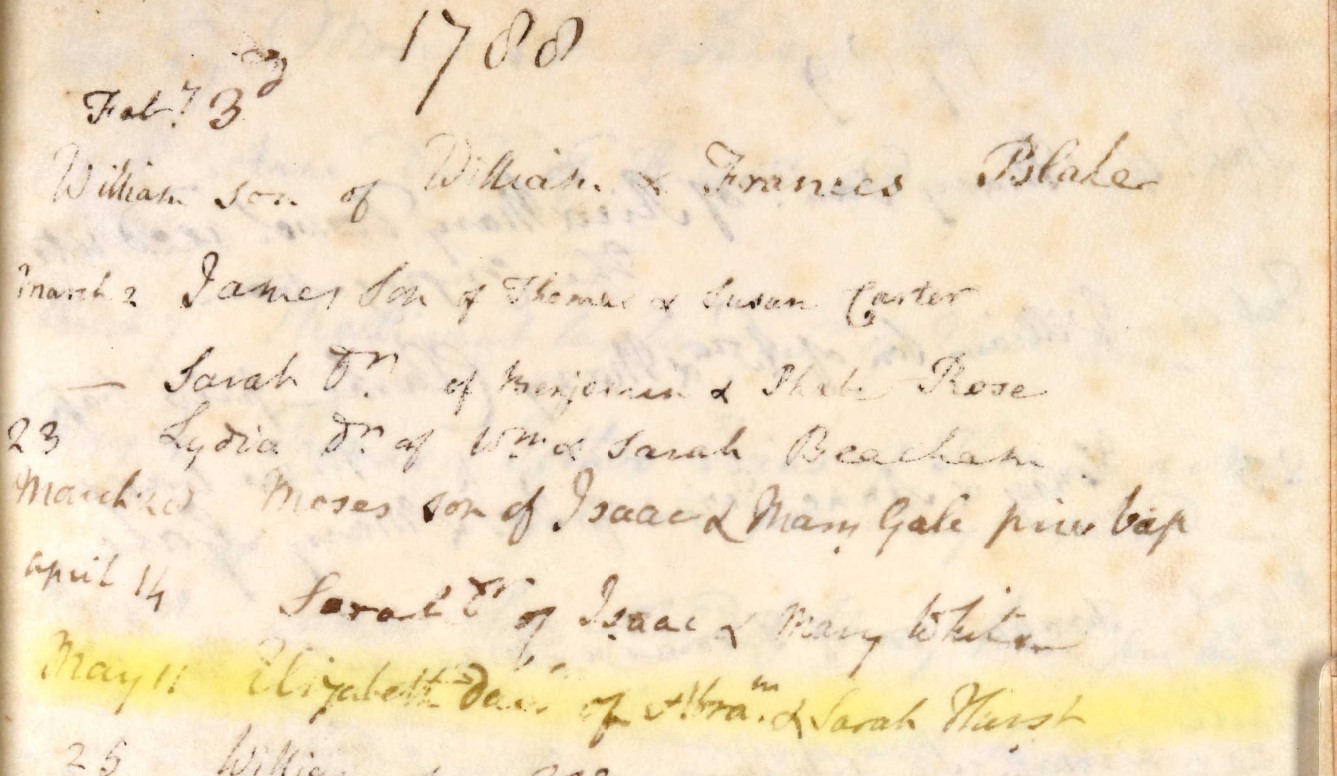 1788
Feby 3d
William son of William & Frances Blake
March 2 James Son of Thomas & Susan Carter
— Sarah Dr. of Benjamin & Phebe Rose
23 Lydia Dr of Wm & Sarah Beacham
March Moses son of Isaac & Mary Gale priv bap
April 14 Sarah Dr of Isaac & Mary White
May 11 Elizabeth Daur of Abram & Sarah Hurst
25 William